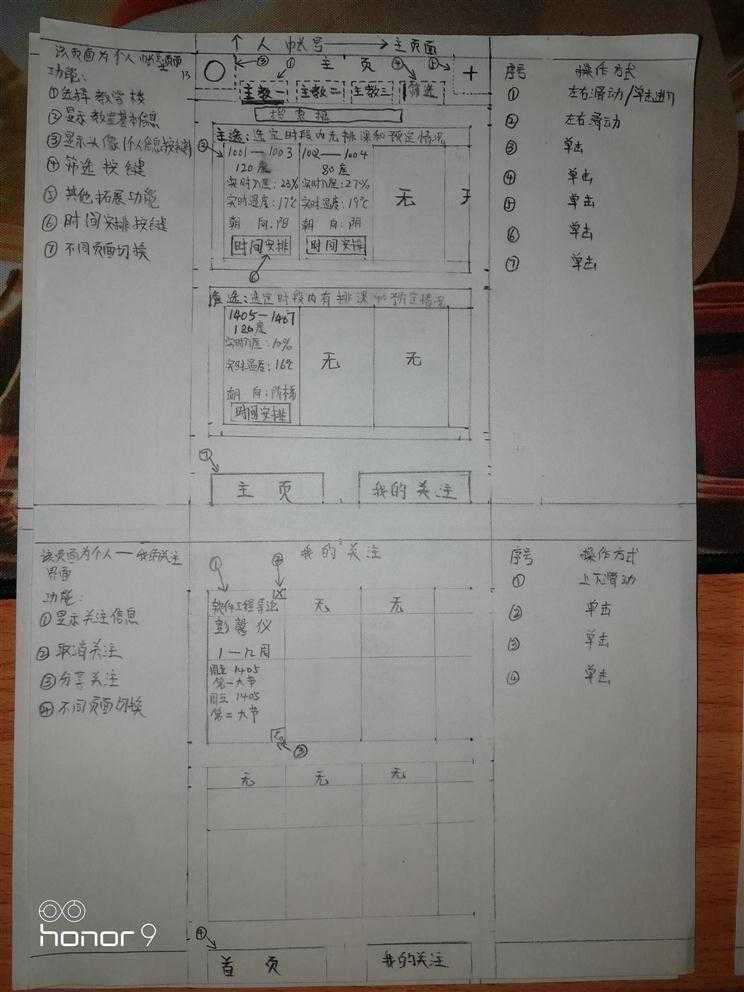 个人帐号 → 主页面
该页面为个人帐号主页面
功能：
①选择教学楼
②显示教室基本信息
③显示头像(个人信息按键)
④筛选按键
⑤其他拓展功能
⑥时间安排按键
⑦不同页面切换
③ ① 主页 ④ ⑤
主教一 主教二 主教三 筛选
检索框
②
主选：选定时段内无排课和预定情况
1001—1003 1002—1004
120座 80座
实时入座：23% 实时入座：27%
无
实时温度：17℃ 实时温度：19℃
朝向：阳 朝向：阴
时间安排 时间安排
⑥
备选：选定时段内有排课和预定情况
1405—1407
120座
实时入座：10%
实时温度：16℃
无 无
朝向：阴
时间安排
⑦
主页 我的关注
序号 操作方式
① 左右滑动/单击进行
② 左右滑动
③ 单击
④ 单击
⑤ 单击
⑥ 单击
⑦ 单击
该页面为个人——我的关注
界面
功能：
①显示关注信息
②取消关注
③分享关注
④不同页面切换
我的关注
①
软件工程算法 无 无
1—12周
1405
第一大节
1405
第二大节
③
无 无 无
④
首页 我的关注
序号 操作方式
① 上下滑动
② 单击
③ 单击
④ 单击
honor 9